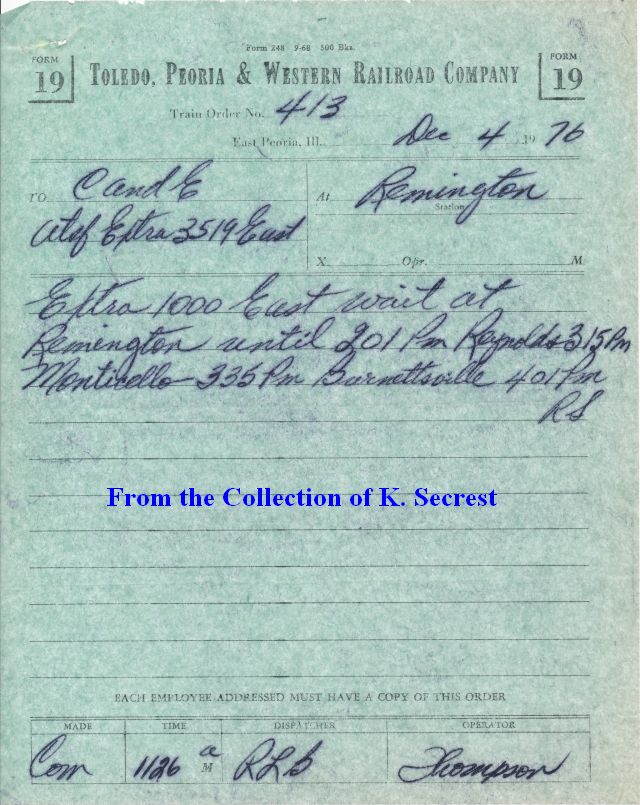 Form 248 9-68 500 Bks.
FORM 19
TOLEDO, PEORIA & WESTERN RAILROAD COMPANY
FORM 19
Train Order No. 413
East Peoria, Ill. Dec 4 19 76
TO C and E
At Remington
Station
Atsf Extra 3519 East
X. Opr. M
Extra 1000 East wait at
Remington until 201 Pm Reynolds 315 Pm
Monticello 335 Pm Burnettsville 401 Pm
RS
From the Collection of K. Secrest
EACH EMPLOYEE ADDRESSED MUST HAVE A COPY OF THIS ORDER
MADE TIME DISPATCHER OPERATOR
Com 1126 a M RLS Thompson